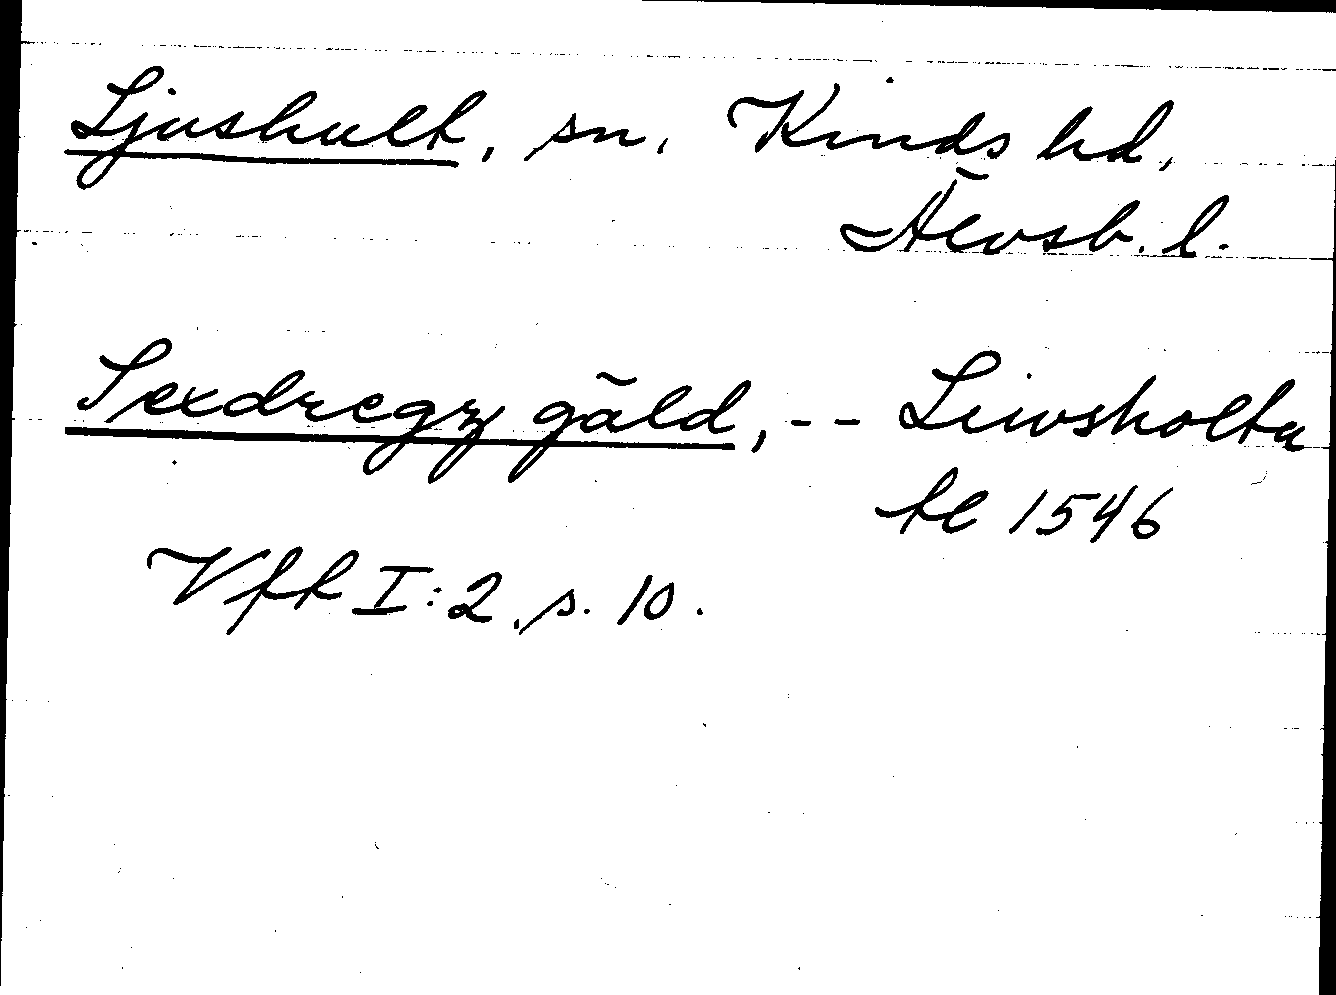 Ljushult, sn, Kinds hd,
Älvsb. l.
Sexdregz gäld, -- Liwsholta
kl 1546
VFR I:2, s. 10.